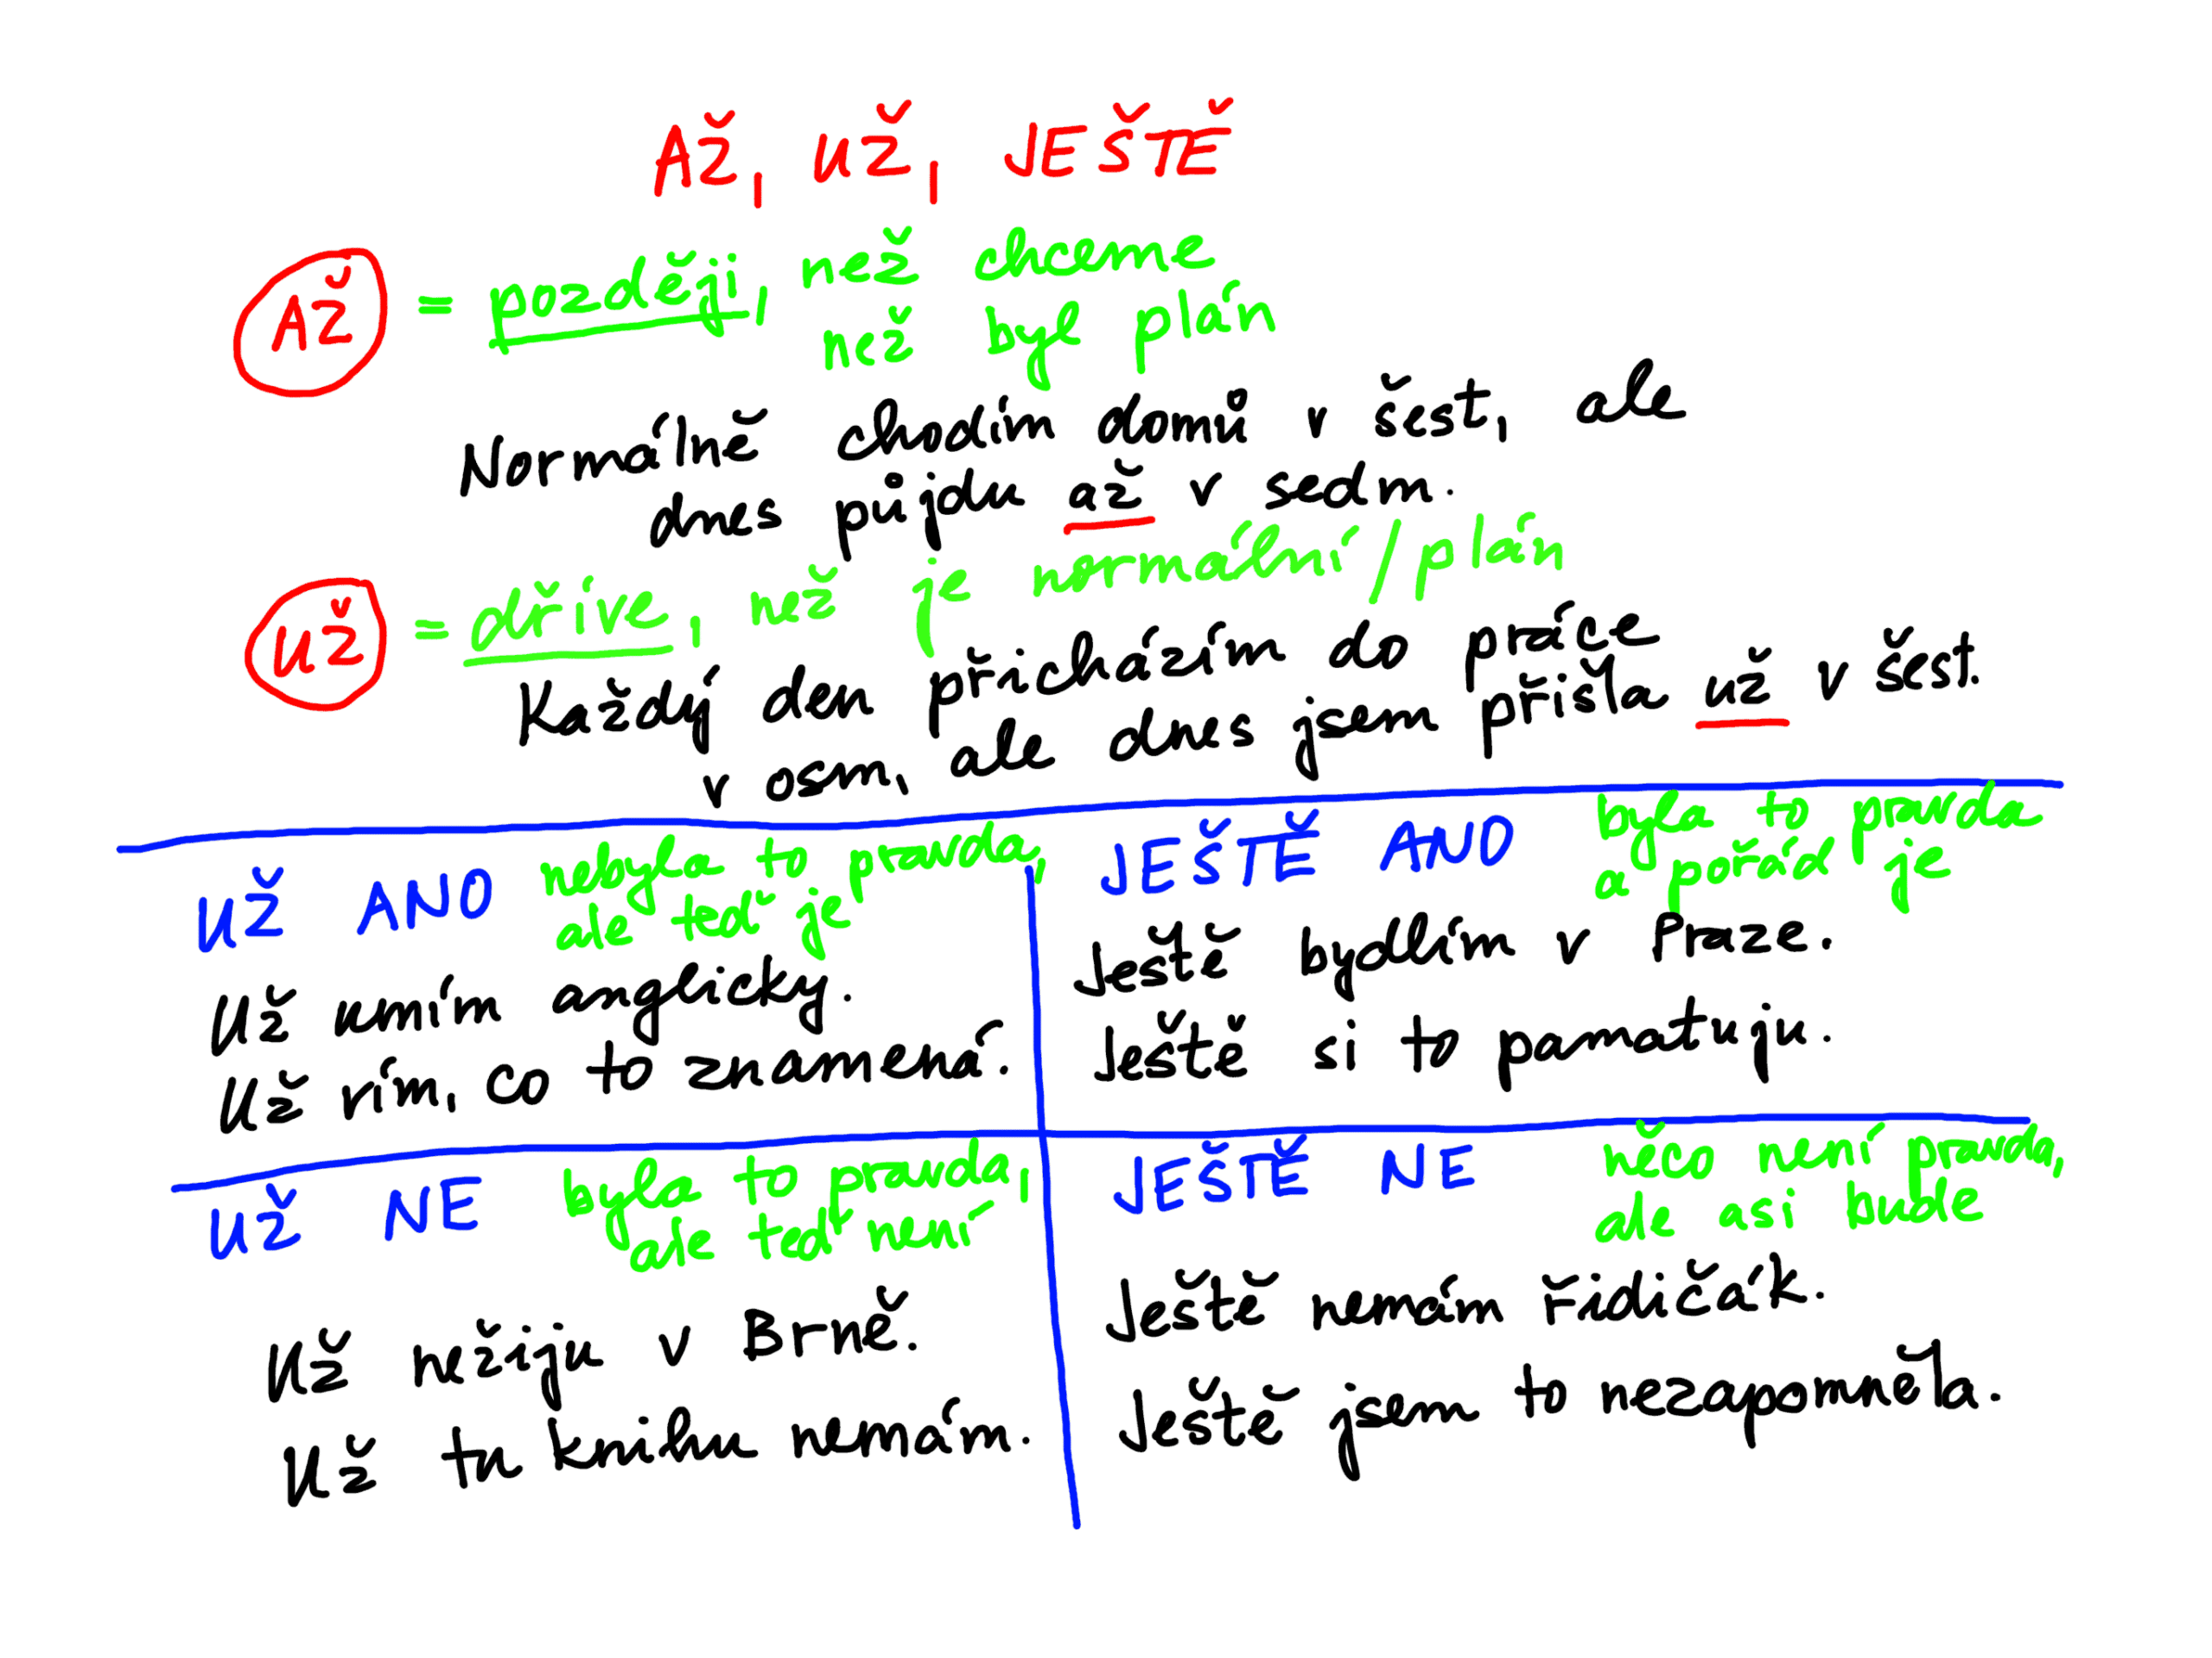 AŽ, UŽ, JEŠTĚ
AŽ = později, než chceme
než byl plán
Normálně chodím domů v šest, ale
dnes půjdu až v sedm.
UŽ = dříve, než je normální/plán
Každý den přicházím do práce
v osm, ale dnes jsem přišla už v šest.
UŽ ANO nebyla to pravda,
ale teď je
Už umím anglicky.
Už vím, co to znamená.
JEŠTĚ ANO byla to pravda
a pořád je
Ještě bydlím v Praze.
Ještě si to pamatuju.
UŽ NE byla to pravda,
ale teď není
Už nežiju v Brně.
Už tu knihu nemám.
JEŠTĚ NE něco není pravda,
ale asi bude
Ještě nemám řidičák.
Ještě jsem to nezapomněla.